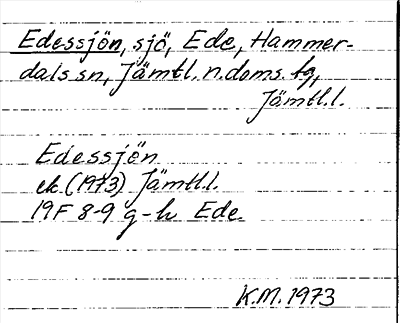 Edessjön, sjö, Ede, Hammer-
dals sn, Jämtl. n. doms. tg,
Jämtl.l.
Edessjön
ek. (1973) Jämtl.l.
19F 8-9 g-h Ede.
K.M. 1973